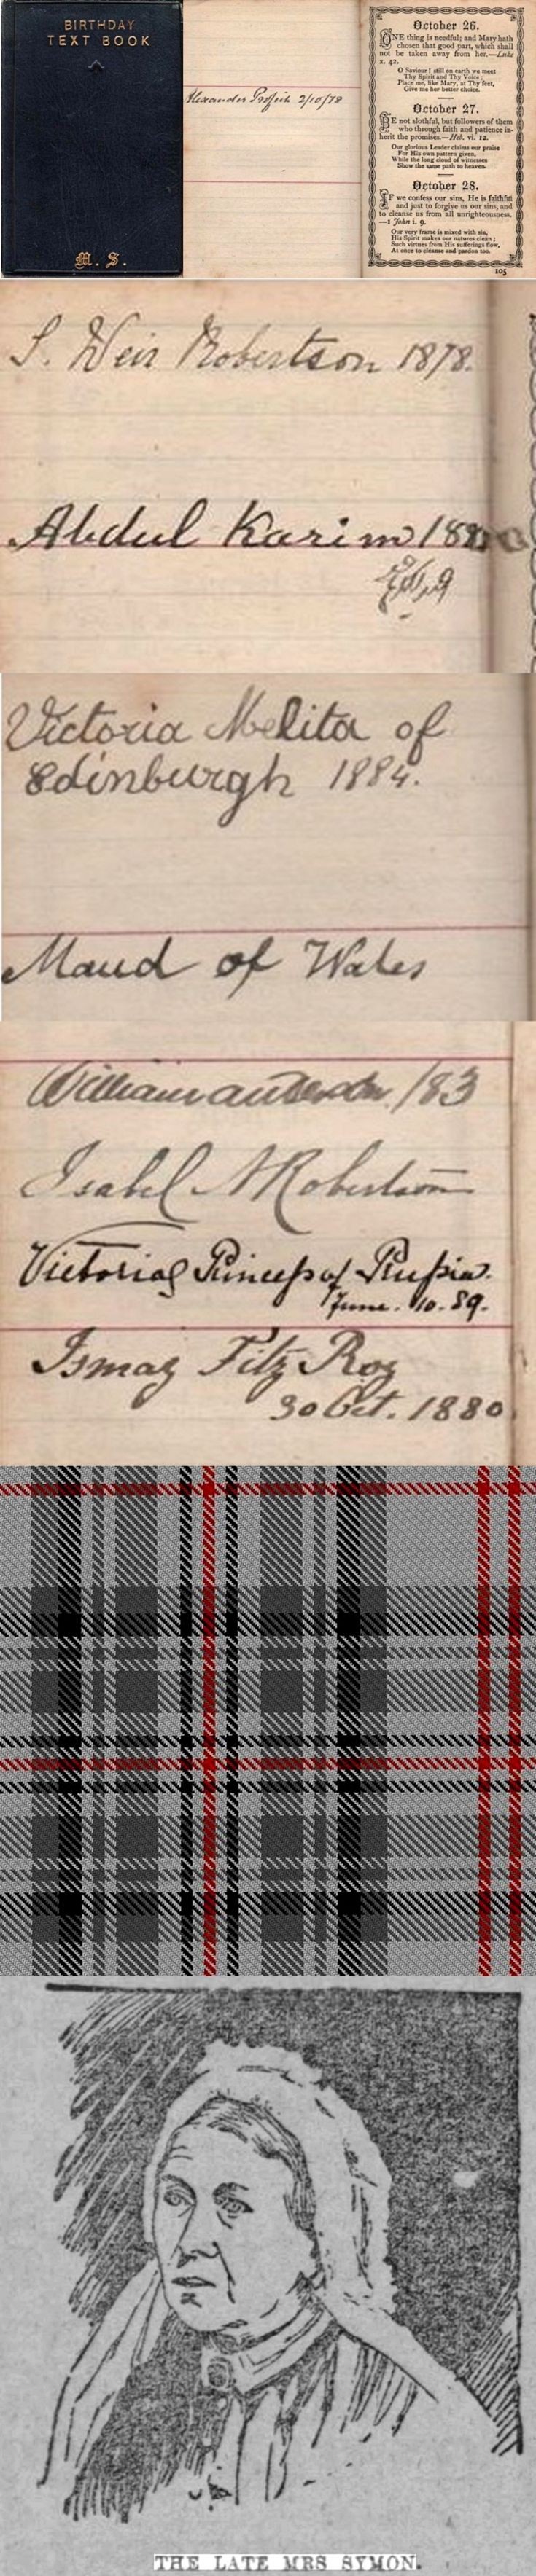 BIRTHDAY
TEXT BOOK
M. S.
Alexander Profeit 2/10/78
October 26.
ONE thing is needful; and Mary hath
chosen that good part, which shall
not be taken away from her.—Luke
x. 42.
O Saviour! still on earth we meet
Thy Spirit and Thy Voice;
Place me, like Mary, at Thy feet,
Give me her better choice.
October 27.
BE not slothful, but followers of them
who through faith and patience in-
herit the promises.—Heb. vi. 12.
Our glorious Leader claims our praise
For His own pattern given,
While the long cloud of witnesses
Show the same path to heaven.
October 28.
IF we confess our sins, He is faithful
and just to forgive us our sins, and
to cleanse us from all unrighteousness.
—1 John i. 9.
Our very frame is mixed with sin,
His Spirit makes our natures clean;
Such virtues from His sufferings flow,
At once to cleanse and pardon too.
105
S. Weir Robertson 1878.
Abdul Karim
Victoria Melita of
Edinburgh 1884.
Maud of Wales
William Anderson /83
Isabel Robertson
Victoria Princess of Prussia.
June. 10. 89.
Ismay Fitz Roy
30 Oct. 1880
THE LATE MRS SYMON.